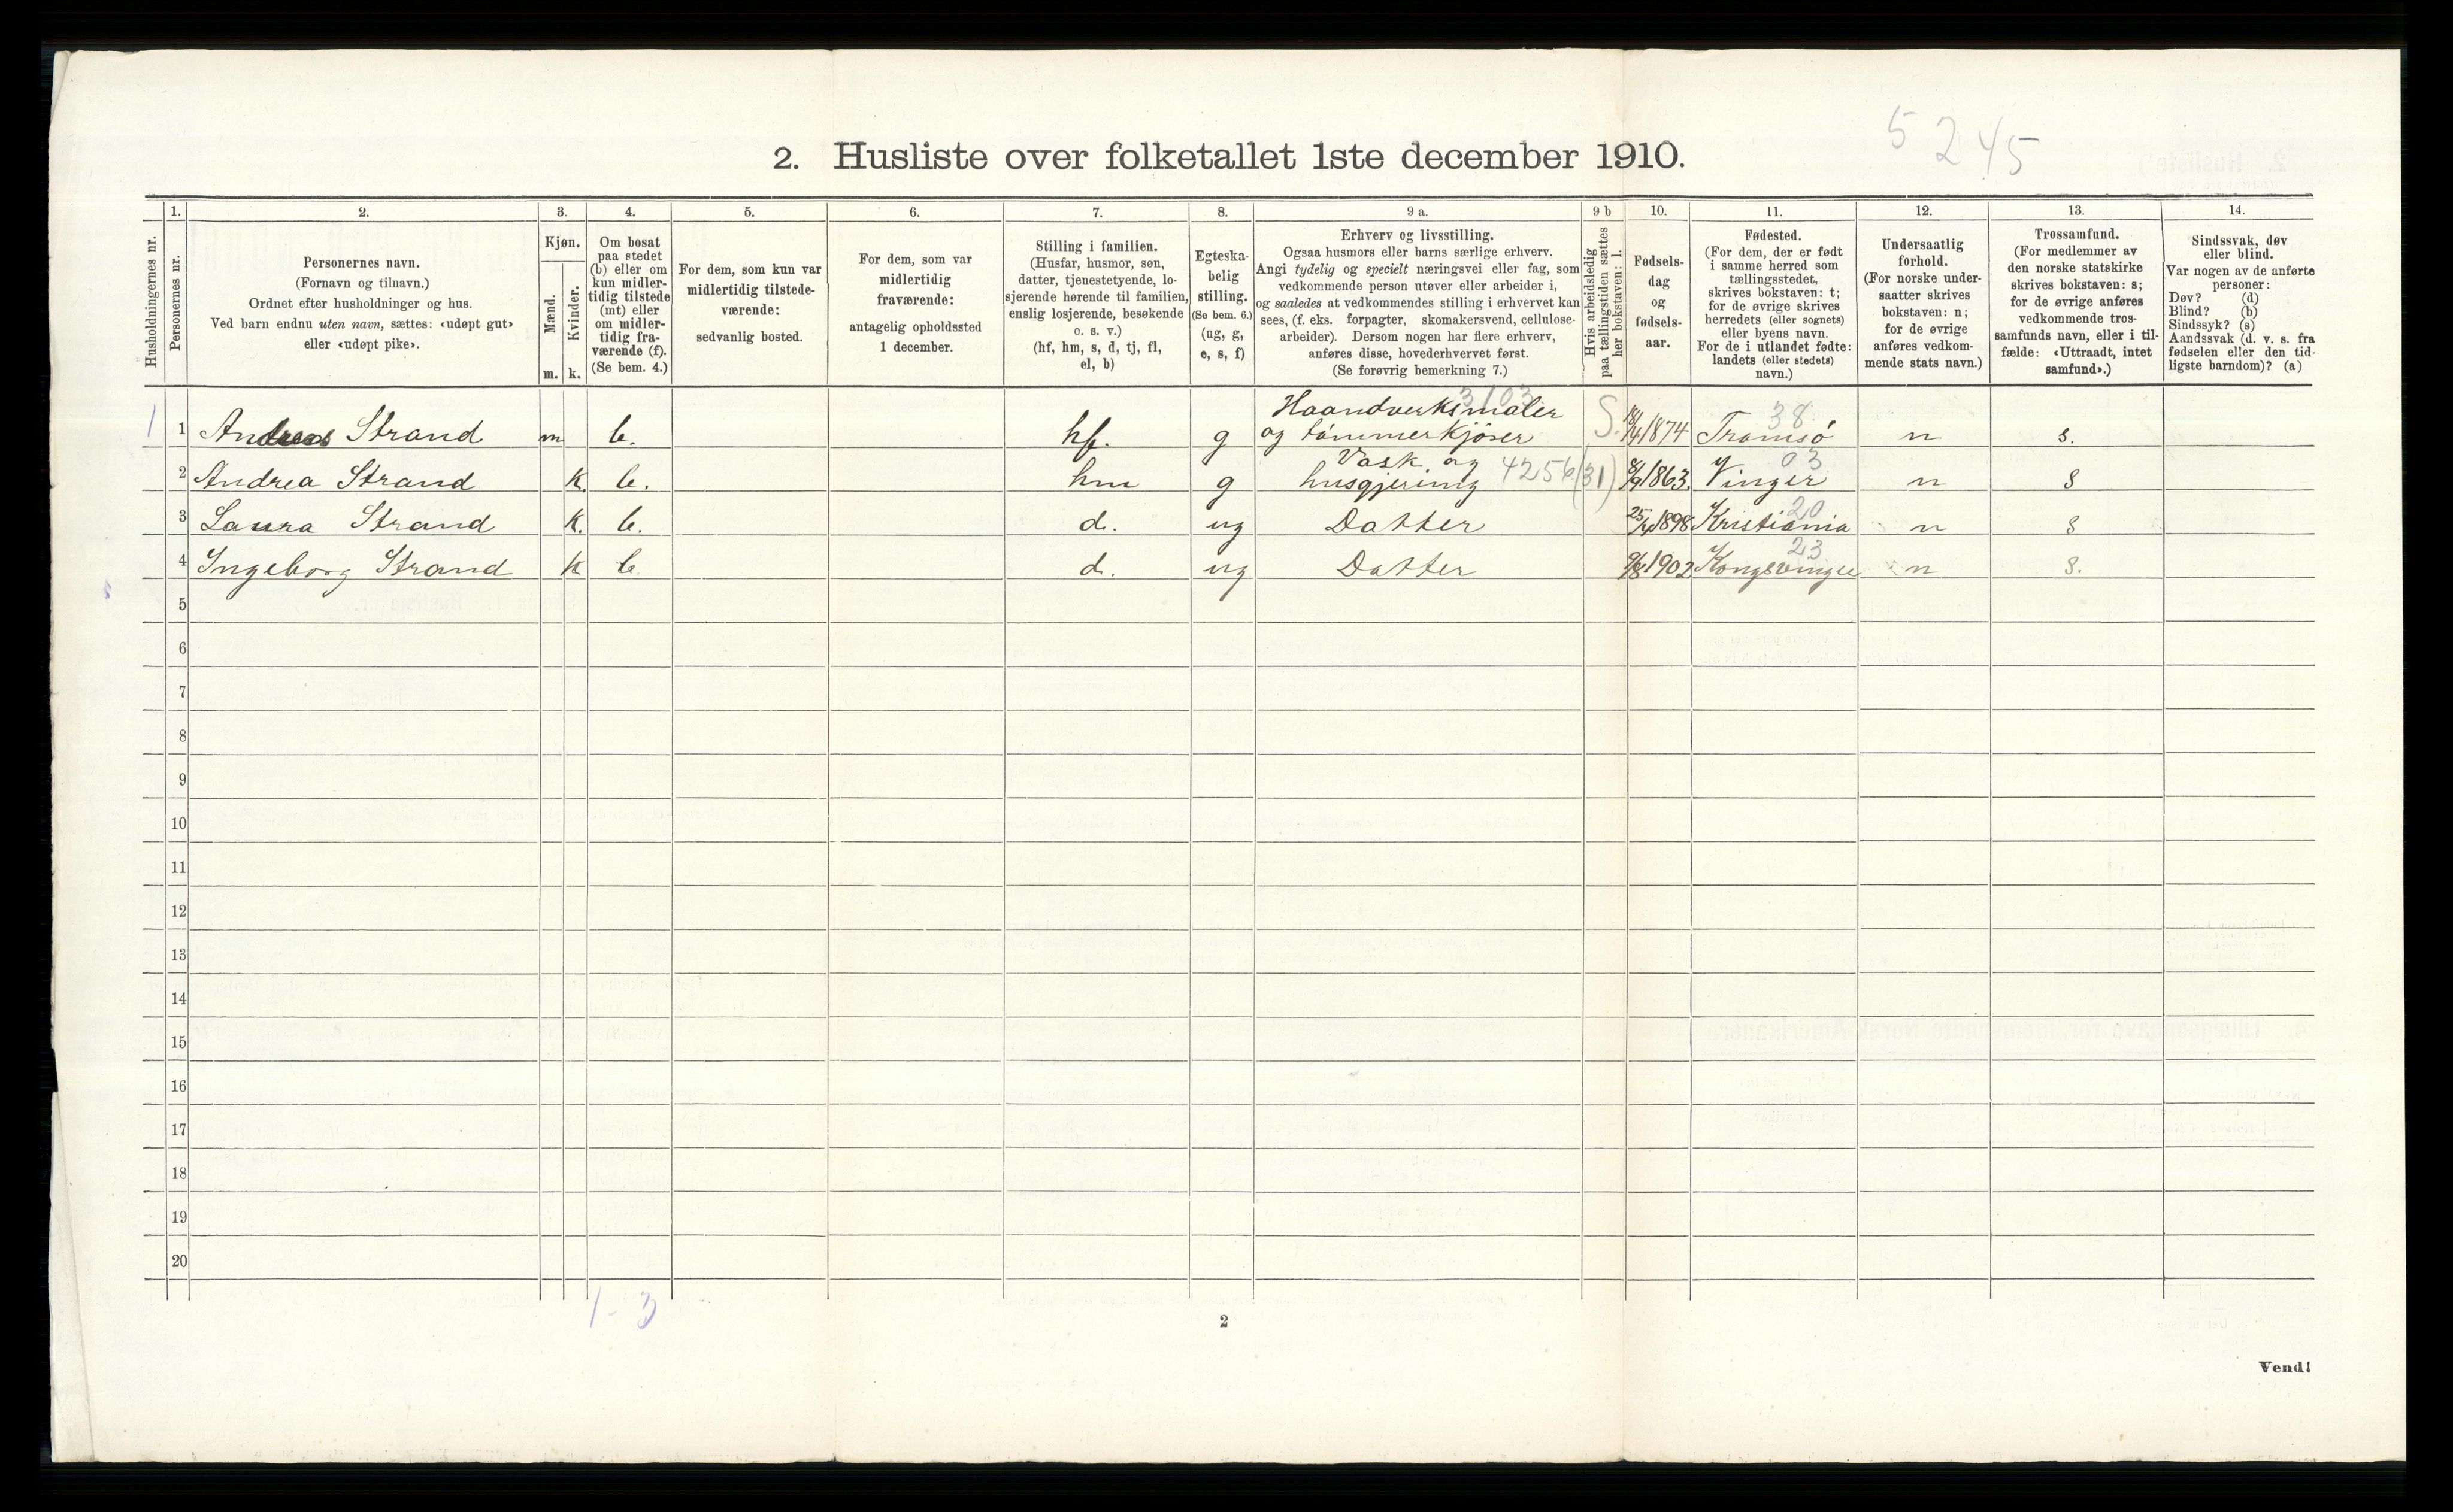 5245
2. Husliste over folketallet 1ste december 1910.
Husholdningernes nr.
1.
Personernes nr.
2.
Personernes navn.
(Fornavn og tilnavn.)
Ordnet efter husholdninger og hus.
Ved barn endnu uten navn, sættes: «udøpt gut»
eller «udøpt pike».
3.
Kjøn.
Mænd.
Kvinder.
m. k.
4.
Om bosat
paa stedet
(b) eller om
kun midler-
tidig tilstede
(mt) eller
om midler-
tidig fra-
værende (f).
(Se bem. 4.)
5.
For dem, som kun var
midlertidig tilstede-
værende:
sedvanlig bosted.
6.
For dem, som var
midlertidig
fraværende:
antagelig opholdssted
1 december.
7.
Stilling i familien.
(Husfar, husmor, søn,
datter, tjenestetyende, lo-
sjerende hørende til familien,
enslig losjerende, besøkende
o. s. v.)
(hf, hm, s, d, tj, fl,
el, b)
8.
Egteska-
belig
stilling.
(Se bem. 6.)
(ug, g,
e, s, f)
9 a.
Erhverv og livsstilling.
Ogsaa husmors eller barns særlige erhverv.
Angi tydelig og specielt næringsvei eller fag, som
vedkommende person utøver eller arbeider i,
og saaledes at vedkommendes stilling i erhvervet kan
sees, (f. eks. forpagter, skomakersvend, cellulose-
arbeider). Dersom nogen har flere erhverv,
anføres disse, hovederhvervet først.
(Se forøvrig bemerkning 7.)
9 b
Hvis arbeidsledig
paa tællingstiden sættes
her bokstaven: l.
10.
Fødsels-
dag
og
fødsels-
aar.
11.
Fødested.
(For dem, der er født
i samme herred som
tællingsstedet,
skrives bokstaven: t;
for de øvrige skrives
herredets (eller sognets)
eller byens navn.
For de i utlandet fødte:
landets (eller stedets)
navn.)
12.
Undersaatlig
forhold.
(For norske under-
saatter skrives
bokstaven: n;
for de øvrige
anføres vedkom-
mende stats navn.)
13.
Trossamfund.
(For medlemmer av
den norske statskirke
skrives bokstaven: s;
for de øvrige anføres
vedkommende tros-
samfunds navn, eller i til-
fælde: «Uttraadt, intet
samfund».)
14.
Sindssvak, døv
eller blind.
Var nogen av de anførte
personer:
Døv? (d)
Blind? (b)
Sindssyk? (s)
Aandssvak (d. v. s. fra
fødselen eller den tid-
ligste barndom)? (a)
3103
Haandverksmaler
38
1 1 Andreas Strand m b. hf. g og tømmerkjører S. 1874 Tromsø n s.
Vask og
4256(31) 03
2 Andrea Strand k. b. hm g husgjering 8/9 1863. Vinger n s
20
3 Laura Strand k. b. d. ug Datter 1898 Kristiania n s
23
4 Ingeborg Strand k b d. ug Datter 9/8 1902 Kongsvinger n s.
5
6
7
8
9
10
11
12
13
14
15
16
17
18
19
20
1-3
2
Vend!